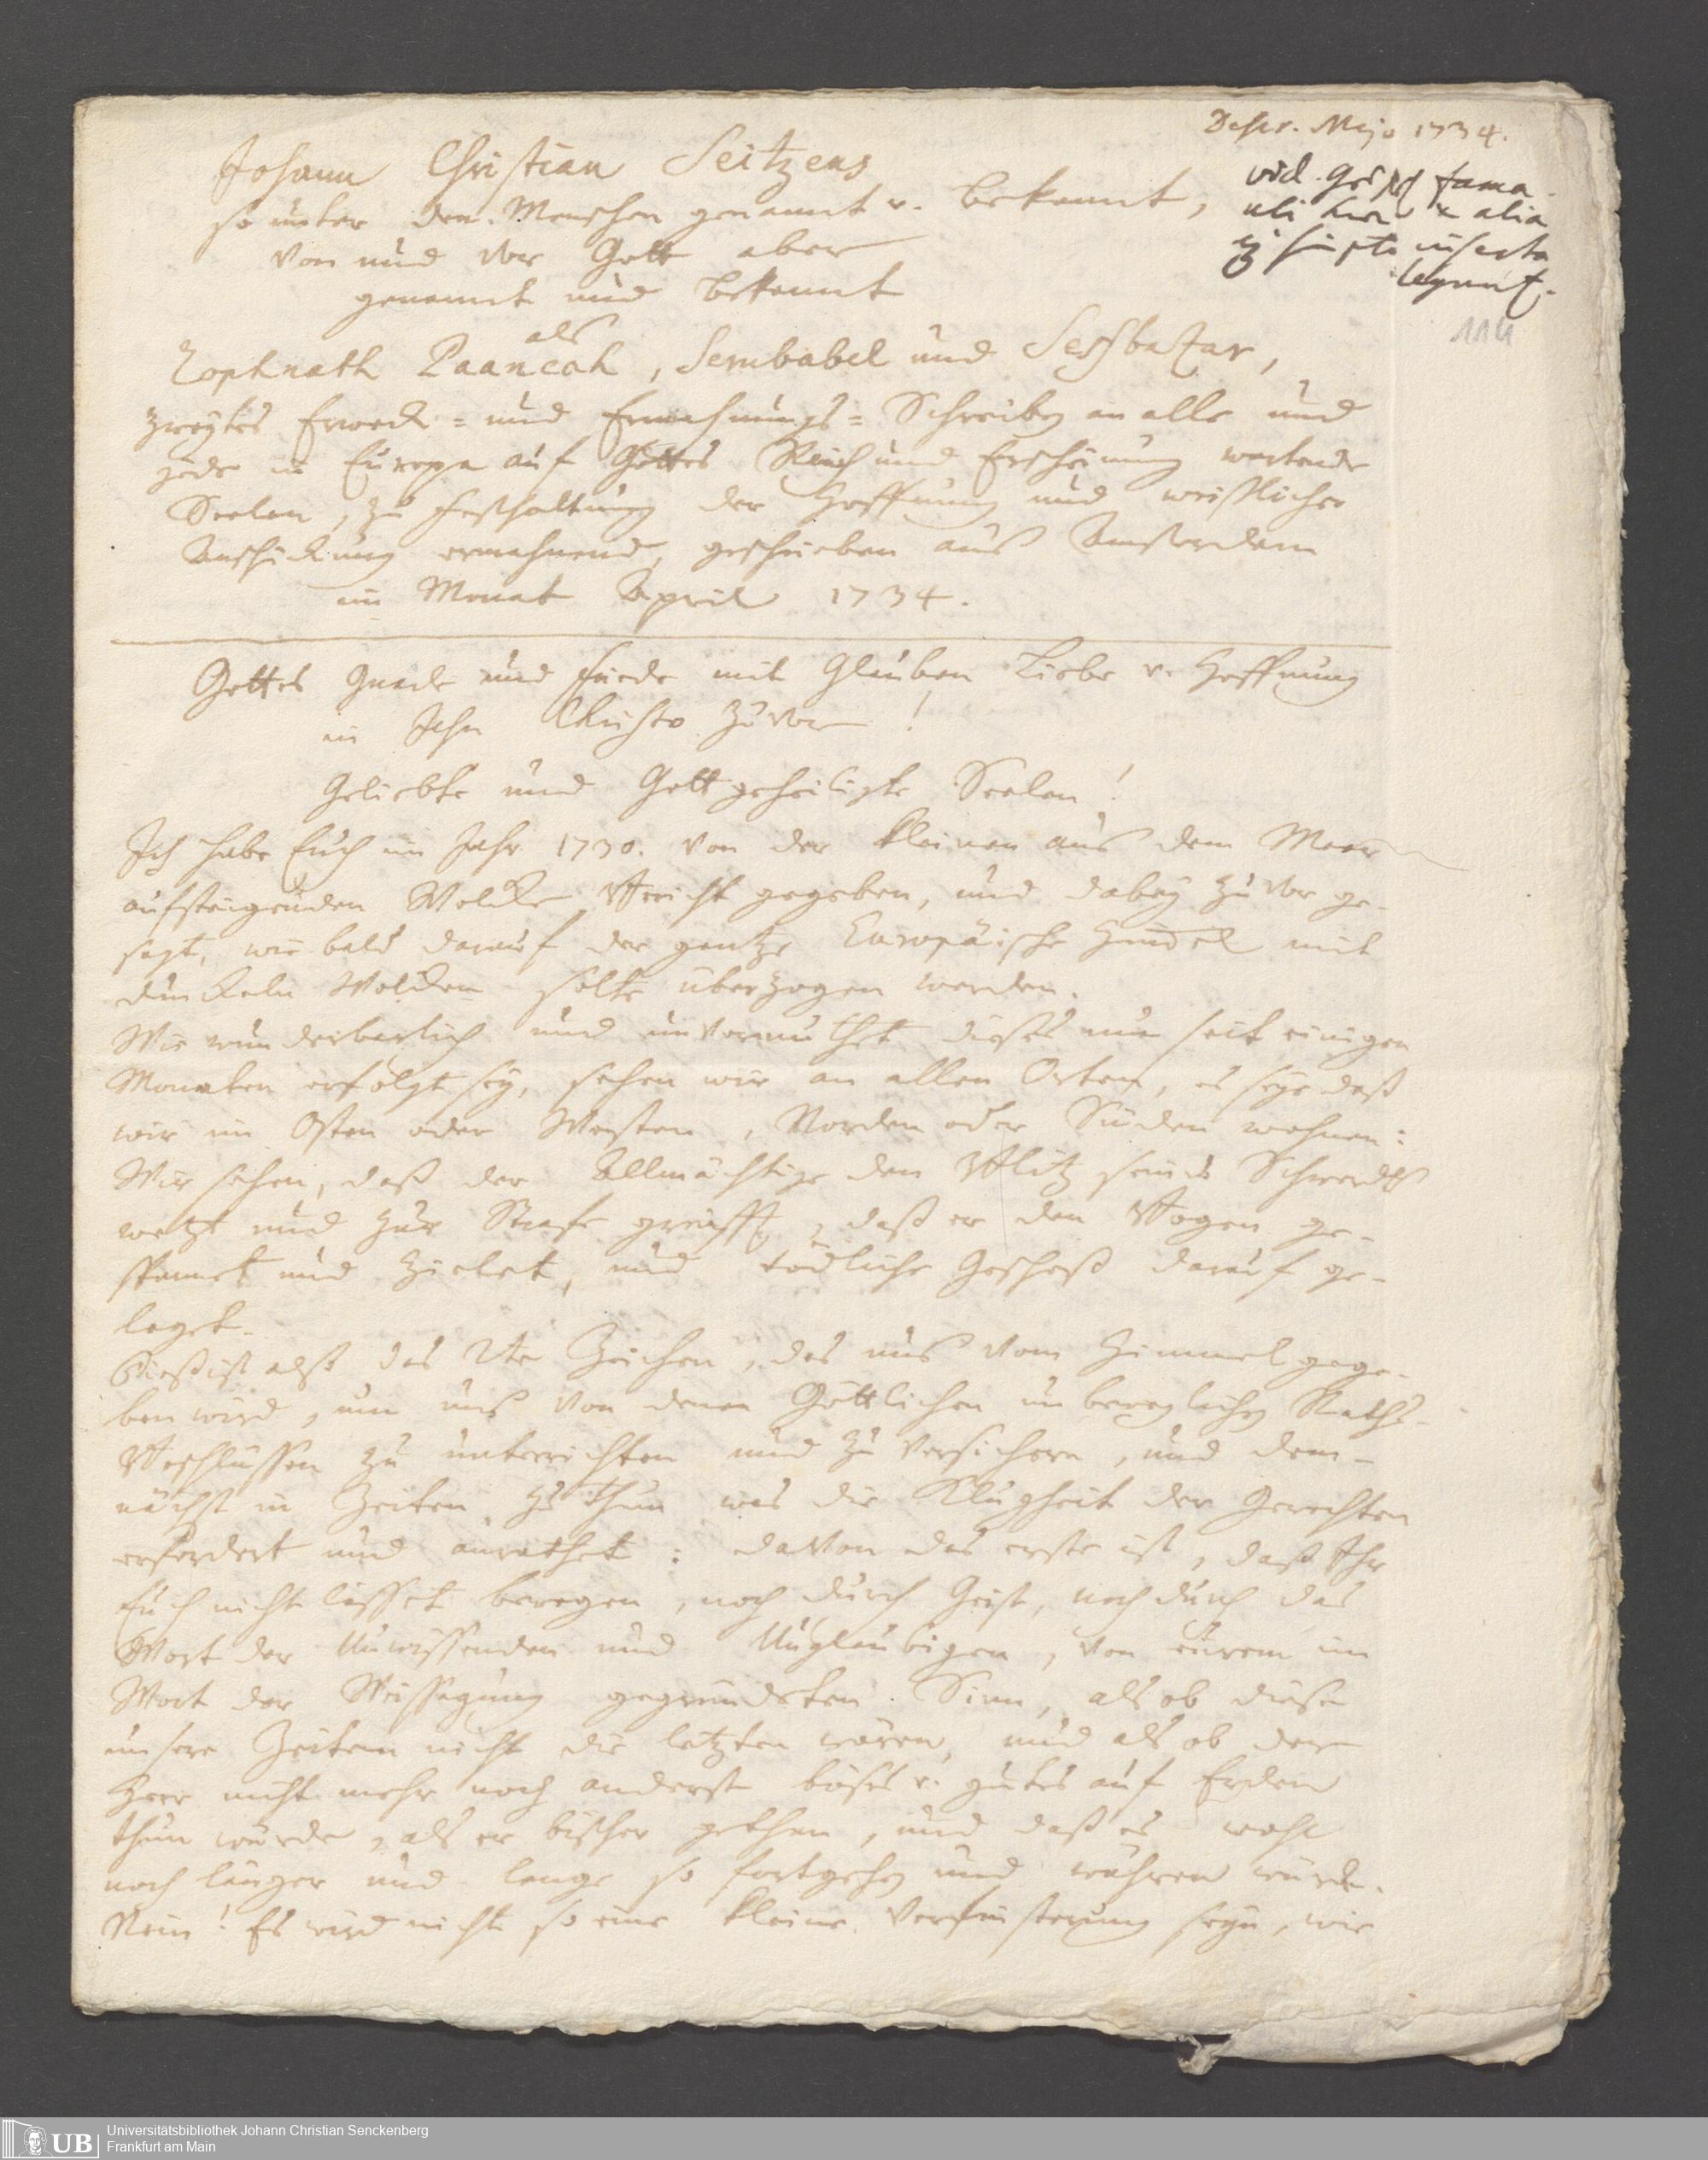 Descr. Majo 1734.
vid. fama
ubi haec & alia
inserta
legunt.
114
Johann Christian Seitzens
so unter den Menschen genannt u. bekannt,
von und vor Gott aber
genannt und bekannt
als
Zophnath Paaneah, Serubabel und Sesbazar,
zweytes Erweck- und Ermahnungs-Schreiben an alle und
jede in Europa auf Gottes Reich und Erscheinung wartende
Seelen, zu Festhaltung der Hoffnung und weißlicher
Anschickung ermahnend, geschrieben aus Amsterdam
im Monat April 1734.
Gottes Gnade und Friede mit Glauben Liebe u. Hoffnung
in Jesu Christo zuvor!
Geliebte und Gott geheiligte Seelen!
Ich habe Euch im Jahr 1730. von der kleinen aus dem Meer
aufsteigenden Wolcke Bericht gegeben, und dabey zuvor ge-
sagt, wie bald darauf der gantze Europäische Himel mit
dunckeln Wolcken solte überzogen werden.
Wie wunderbarlich und unvermuthet dieses nun seit einigen
Monaten erfolgt sey, sehen wir an allen Orten, es seye daß
wir im Osten oder Westen, Norden oder Süden wohnen:
Wir sehen, daß der Allmächtige den Blitz seines Schwerdts
wetzt und zur Strafe greifft, daß er den Bogen ge-
spannet und zielet, und tödliche Geschoß darauf ge-
leget.
Dieß ist also das 2te Zeichen, das uns vom Himmel gege-
ben wird, um uns von denen Göttlichen unbeweglichen Raths-
Beschlüssen zu unterrichten und zu versichern, und dem-
nächst in Zeiten zu thun was die Klugheit der Gerechten
erfordert und anrathet: davon das erste ist, daß Ihr
Euch nicht lasset bewegen, noch durch Geist, noch durch das
Wort der Unwissenden und Unglaubigen, von eurem im
Wort der Weissagung gegründeten Sinn, als ob diese
unsere Zeiten nicht die letzten wären, und als ob der
Herr nicht mehr noch anderst böses u. gutes auf Erden
thun würde, als er bißher gethan, und daß es wohl
noch länger und lange so fortgehen und währen würde.
Nein! Es wird nicht so eine kleine Verfinsterung seyn, wie
UB
Universitätsbibliothek Johann Christian Senckenberg
Frankfurt am Main